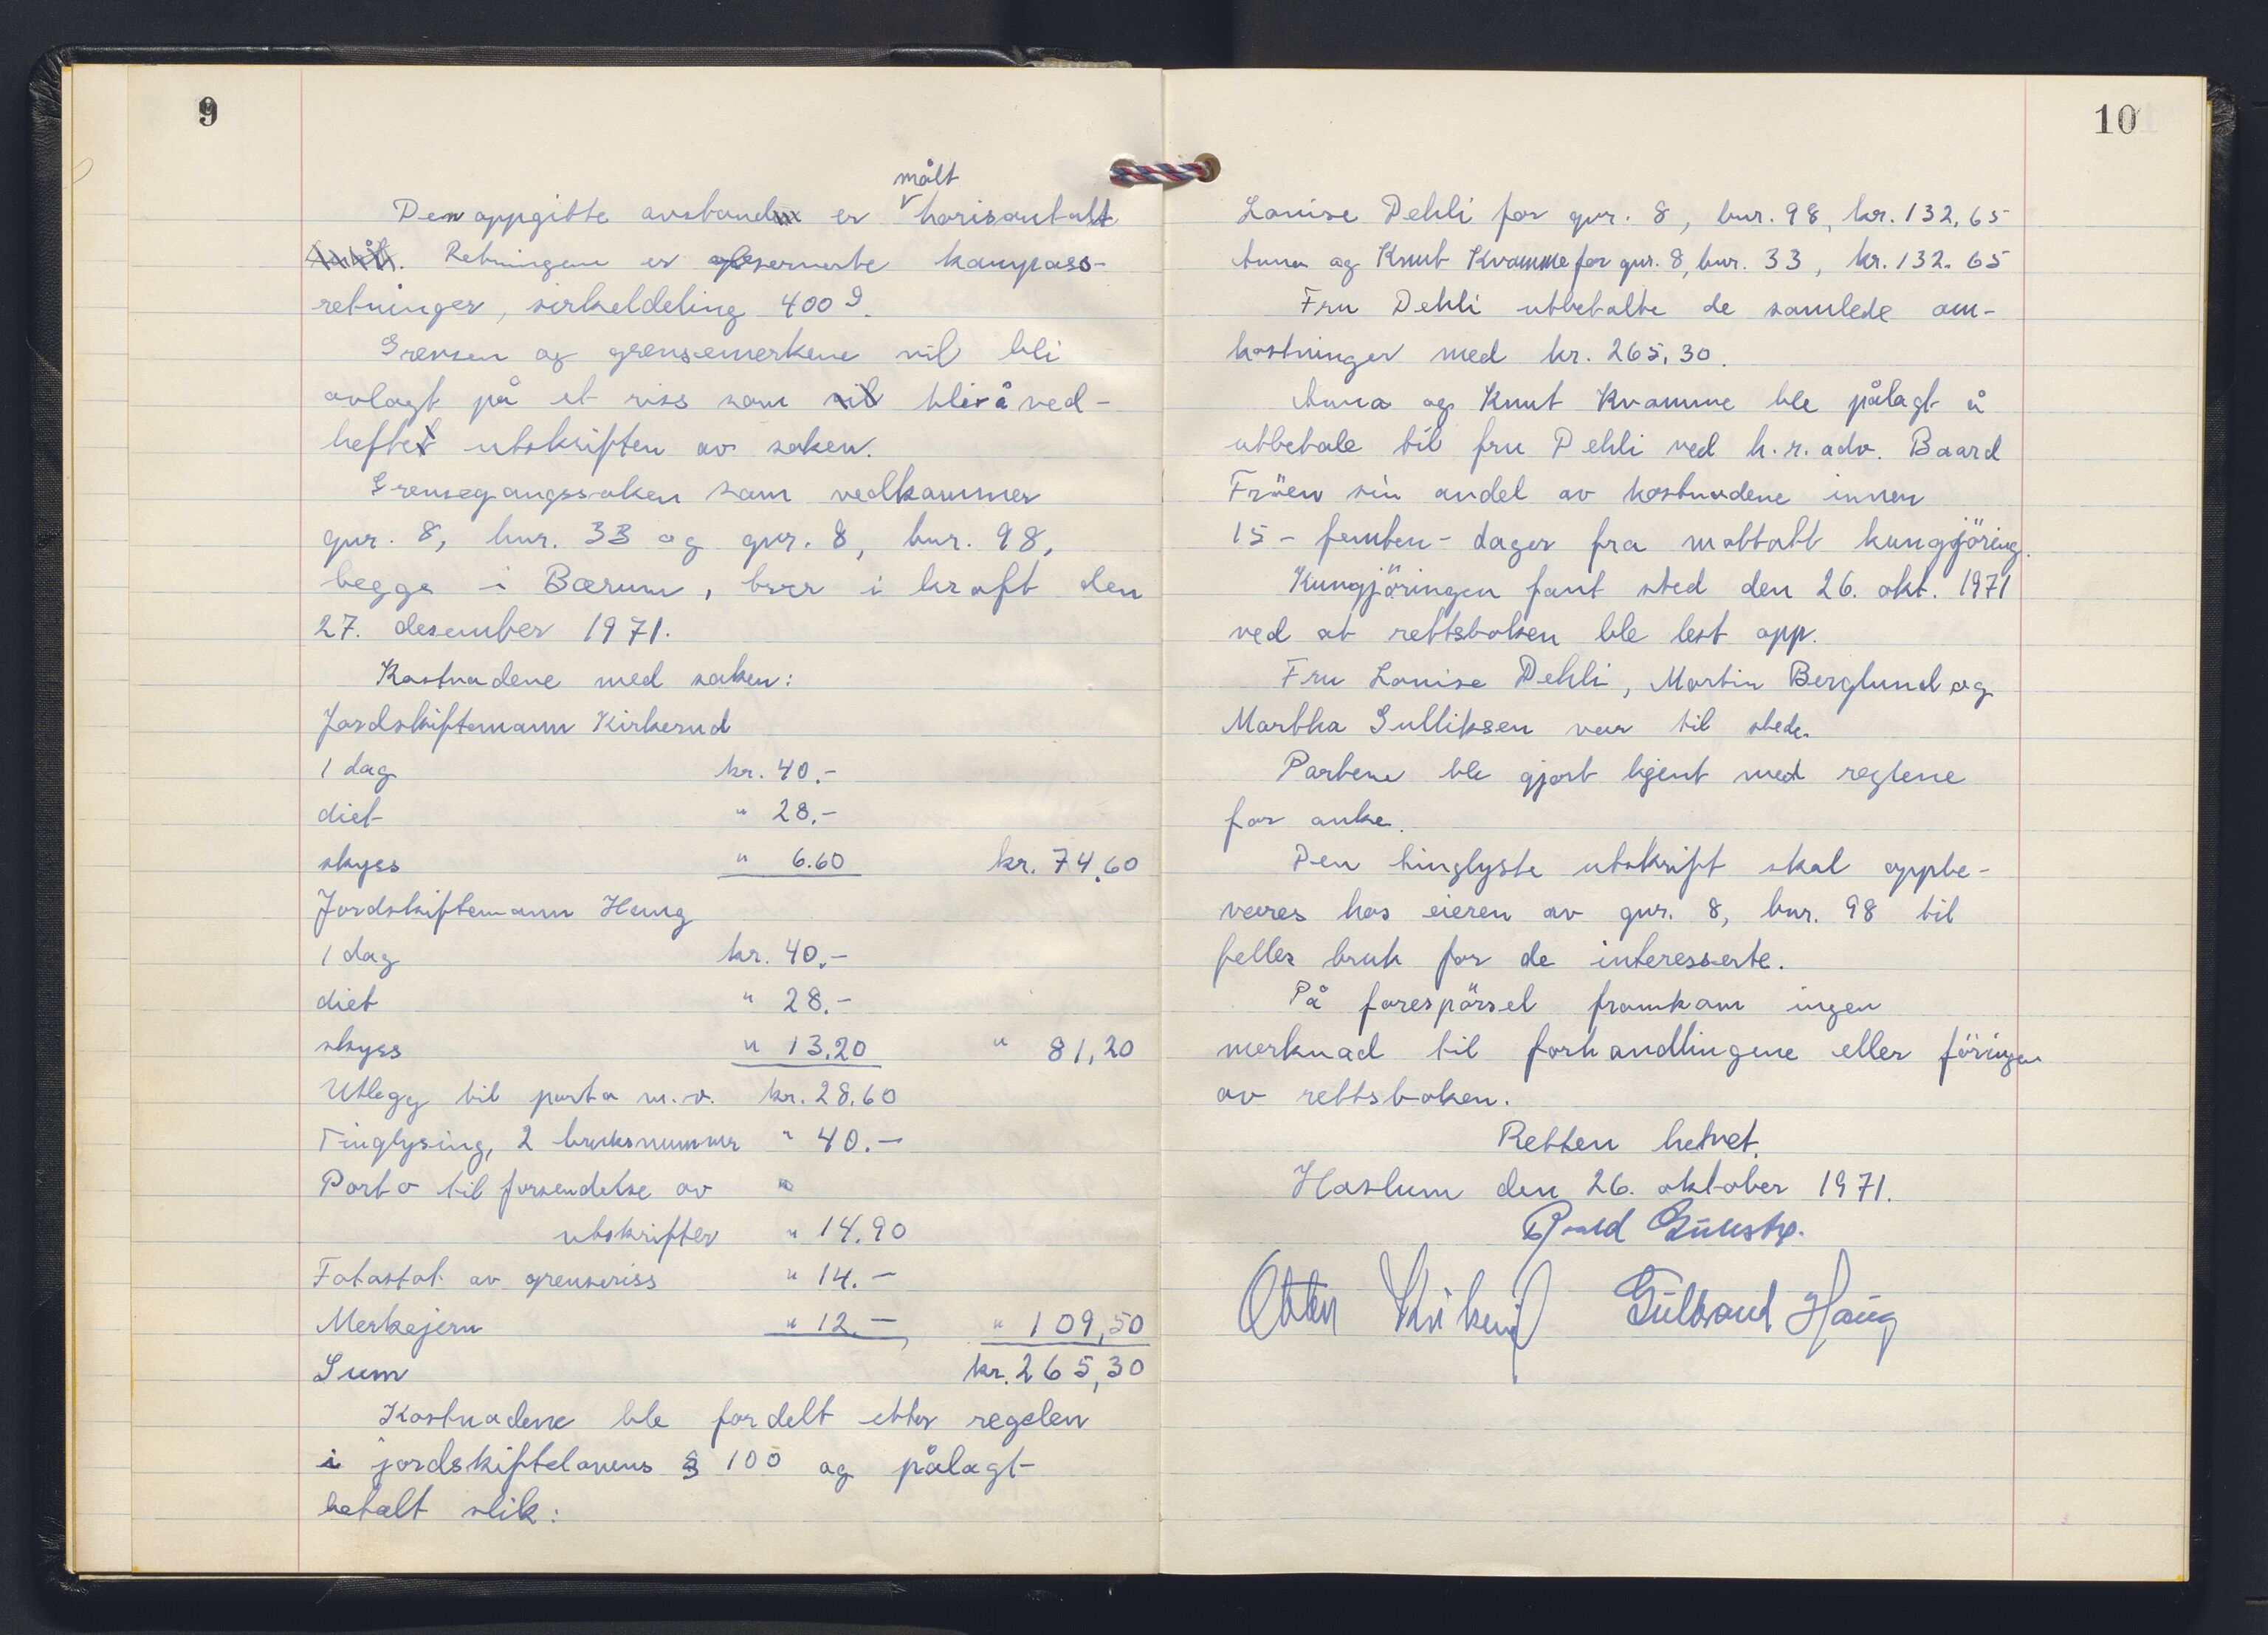 9
målt
Den oppgitte avstand er horisontalt
Retningene er observerte kompass-
retninger, sirkeldeling 400 g.
Grensen og grensemerkene vil bli
avlagt på et riss som blir å ved-
hefte utskriften av saken.
Grensegangssaken som vedkommer
gnr. 8, bnr. 33 og gnr. 8, bnr. 98,
begge i Bærum, trer i kraft den
27. desember 1971.
Kostnadene med saken:
Jordskiftemann Kirkerud
1 dag kr. 40.-
diet " 28.-
skyss " 6.60 kr. 74.60
Jordskiftemann Haug
1 dag kr. 40.-
diet " 28.-
skyss " 13.20 " 81,20
Utlegg til porto m.v. kr. 28.60
Tinglysing, 2 bruksnummer " 40.-
Porto til forsendelse av "
utskrifter " 14.90
Fotostat av grenseriss " 14.-
Merkejern " 12.- " 109,50
Sum kr. 265,30
Kostnadene ble fordelt etter regelen
i jordskiftelovens § 100 og pålagt
betalt slik:
10
Louise Dehli for gnr. 8, bnr. 98, kr. 132,65
Anna og Knut Kvamme for gnr. 8, bnr. 33, kr. 132.65
Fru Dehli utbetalte de samlede om-
kostninger med kr. 265,30.
Anna og Knut Kvamme ble pålagt å
utbetale til fru Dehli ved h.r. adv. Baard
Fröen sin andel av kostnadene innen
15 - femten - dager fra mottatt kungjöring.
Kungjöringen fant sted den 26. okt. 1971
ved at rettsboken ble lest opp.
Fru Louise Dehli, Martin Berglund og
Martha Gulliksen var til stede.
Partene ble gjort kjent med reglene
for anke.
Den tinglyste utskrift skal oppbe-
vares hos eieren av gnr. 8, bnr. 98 til
felles bruk for de interesserte.
På forespörsel framkom ingen
merknad til forhandlingene eller föringen
av rettsboken.
Retten hevet.
Haslum den 26. oktober 1971.
Gulbrand Haug